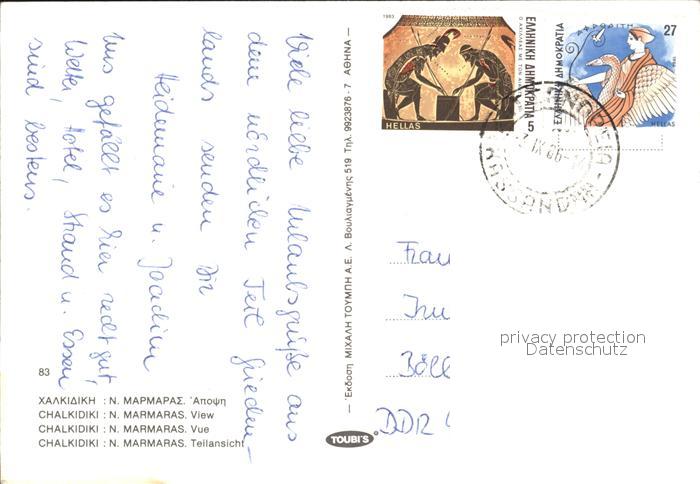 Viele liebe Urlaubsgrüße aus
dem nördlichen Teil Griechen-
lands senden Dir
Heidemarie u. Joachim
Uns gefällt es hier recht gut,
Wetter, Hotel, Strand u. Essen
sind bestens.
83
ΧΑΛΚΙΔΙΚΗ : Ν. ΜΑΡΜΑΡΑΣ. Ἄποψη
CHALKIDIKI : N. MARMARAS. View
CHALKIDIKI : N. MARMARAS. Vue
CHALKIDIKI : N. MARMARAS. Teilansicht
— Ἔκδοση: ΜΙΧΑΛΗ ΤΟΥΜΠΗ Α.Ε. Λ. Βουλιαγμένης 519 Τηλ. 9923876 - 7 ΑΘΗΝΑ —
TOUBI'S
1983
ΕΛΛΗΝΙΚΗ ΔΗΜΟΚΡΑΤΙΑ 5
HELLAS
ΑΦΡΟΔΙΤΗ
27
ΕΛΛΗΝΙΚΗ ΔΗΜΟΚΡΑΤΙΑ
HELLAS
KASSANDRIA
Frau
DDR
privacy protection
Datenschutz